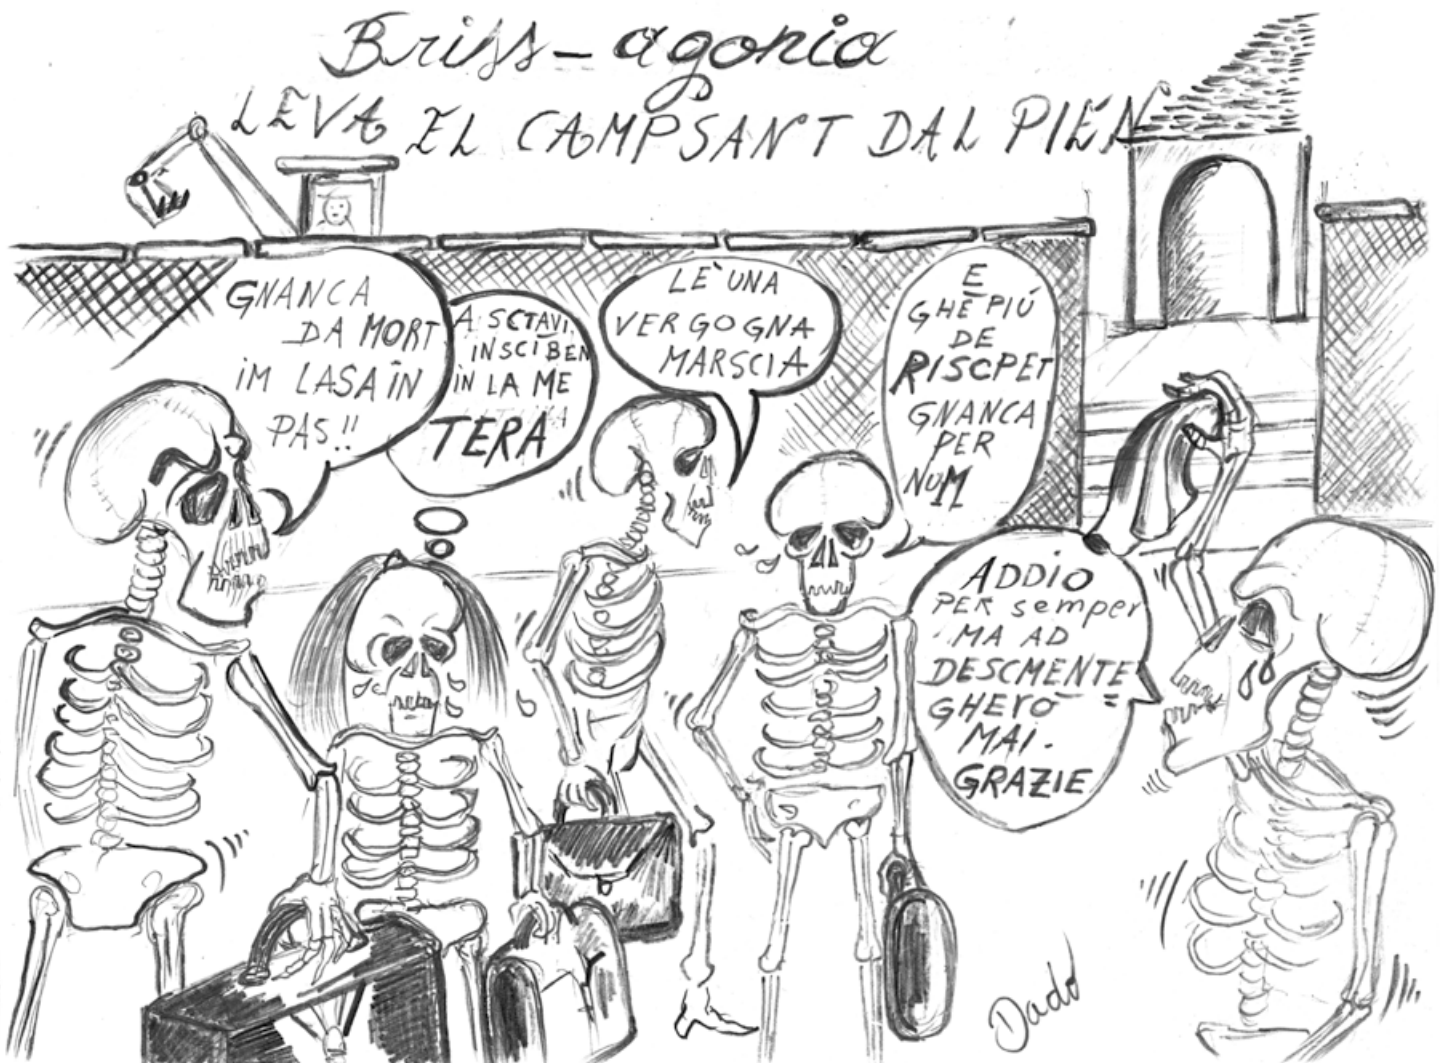 Briss-agonia
LEVA EL CAMPSANT DAL PIEN
GNANCA
DA MORT
IM LASA IN
PAS!!
A SCTAVI
INSCI BEN
IN LA ME
TERA
LE' UNA
VERGOGNA
MARSCIA
E
GHÈ PIÚ
DE
RISCPET
GNANCA
PER
NUM
ADDIO
PER semper
MA AD
DESCMENTE
GHERO
MAI.
GRAZIE
Dado